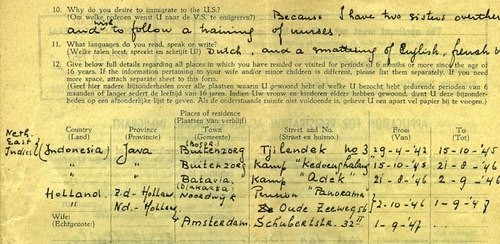 10. Why do you desire to immigrate to the U.S.? Because I have two sisters overthe
(Om welke redenen wenst U naar de V.S. te emigreren?)
and wish to follow a training of nurses.
11. What languages do you read, speak or write?
(Welke talen leest, spreekt en schrijft U) Dutch, and a smattering of English, french
12. Give below full details regarding all places in which you have resided or visited for periods of 6 months or more since the age of
16 years. If the information pertaining to your wife and/or minor children is different, please list them separately. If you need
more space, attach separate sheet to this form.
(Geef hier nadere bijzonderheden over alle plaatsen waarin U gewoond hebt of welke U bezocht hebt gedurende perioden van 6
maanden of langer sedert de leeftijd van 16 jaren. Indien Uw vrouw en kinderen elders hebben gewoond, dient U deze bijzonder-
heden op een afzonderlijke lijst te geven. Als de onderstaande ruimte niet voldoende is, gelieve U een apart vel papier bij te voegen.)
Places of residence
(Plaatsen van verblijf)
Country Province Town Street and No. From To
(Land) (Provincie) (Gemeente) (Straat en huisno.) (Van) (Tot)
Neth. East Indies (Indonesia) Java Buitenzorg Tjilendek no 3 29-4-'42 15-10-'45
" " Buitenzorg Kamp "Kedoenghalang" 15-10-'45 21-8-'46
" " Batavia (Djakarta) Kamp "Adek" 21-8-'46 2-9-'46
Holland Zd-Holland Noordwijk Pension "Panorama"
" Nd-Holland " Oude Zeeweg 56 2-10-'46 1-9-'47
Wife:
(Echtgenote:) Amsterdam. Schubertstr. 32 II 1-9-'47 ...